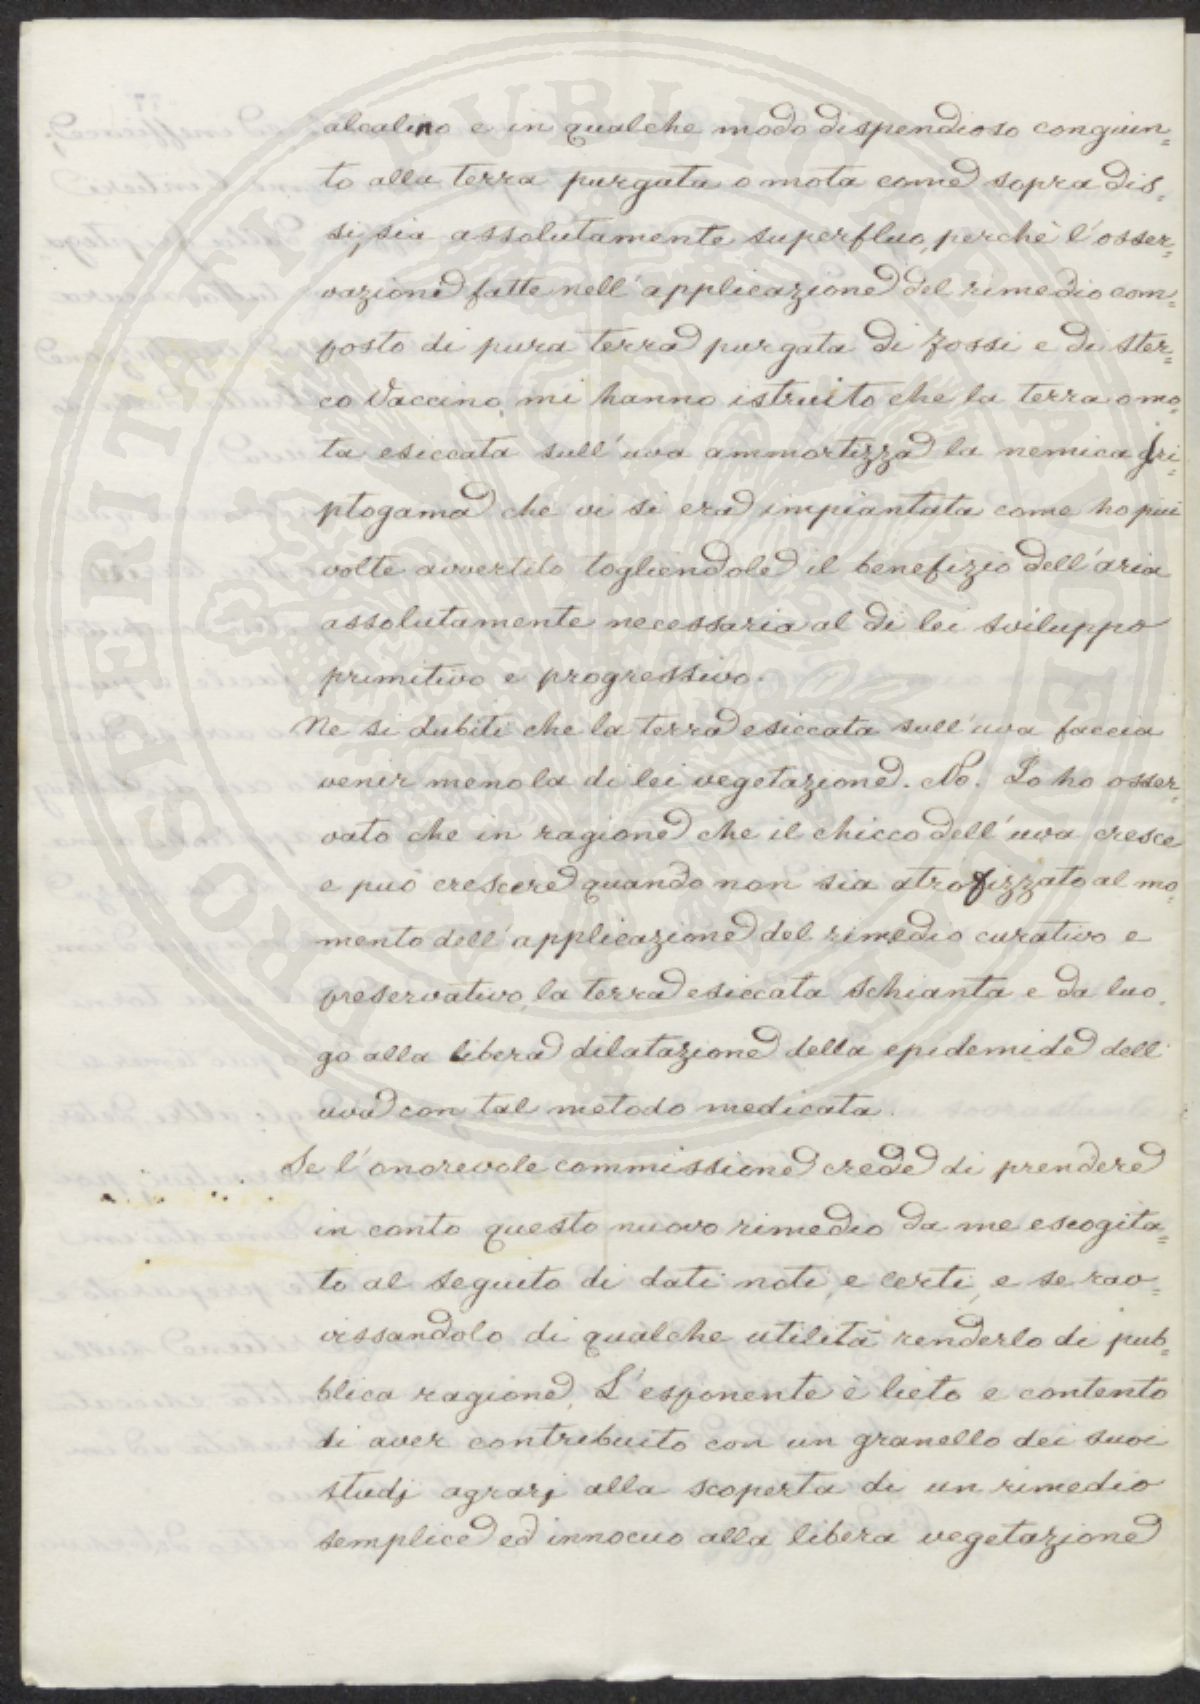 alcalino e in qualche modo dispendioso congiun=
to alla terra purgata o mota come sopra dis=
si, sia assolutamente superfluo, perchè l'osser=
vazione fatte nell'applicazione del rimedio com=
posto di pura terra purgata di fossi e di ster=
co Vaccino, mi hanno istruito che la terra o mo=
ta esiccata sull'uva ammortizza la nemica Cri=
ptogama che vi si era impiantata come ho piui
volte avvertito togliendole il benefizio dell'aria
assolutamente necessaria al di lei sviluppo
primitivo e progressivo.
Ne si dubiti che la terra esiccata sull'uva faccia
venir meno la di lei vegetazione. No. Io ho osser=
vato che in ragione che il chicco dell'uva cresce
e può crescere quando non sia atrofizzato al mo=
mento dell'applicazione del rimedio curativo e
preservativo, la terra esiccata schianta e da luo=
go alla libera dilatazione della epidemide dell'
uva con tal metodo medicata.
Se l'onorevole commissione crede di prendere
in conto questo nuovo rimedio da me escogita=
to al seguito di dati noti, e certi, e se rav=
vissandolo di qualche utilità renderlo di pub=
blica ragione, L'esponente è lieto e contento
di aver contribuito con un granello dei suoi
studj agrarj alla scoperta di un rimedio
semplice ed innocuo alla libera vegetazione
PROSPERITATI PUBLICAE AUGENDAE